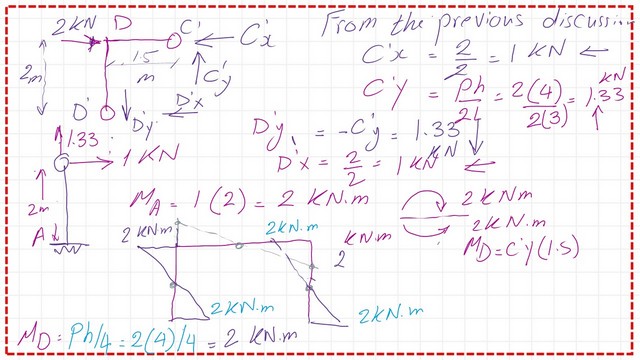 2 KN D C' C'x
From the previous discussion
C'x = 2/2 = 1 KN ←
1.5
m
2m
C'y
C'y = Ph/2L = 2(4)/2(3) = 1.33 KN ↑
D'x
D' D'y
D'y = -C'y = 1.33 KN ↓
1.33
D'x = 2/2 = 1 KN ←
1 KN
2m
A
M_A = 1(2) = 2 KN.m
2 KNm
2 KN.m
M_D = C'y(1.5)
2 KNm 2KN.m KN.m
2
2 KN.m 2KN.m
M_D = Ph/4 = 2(4)/4 = 2 KN.m